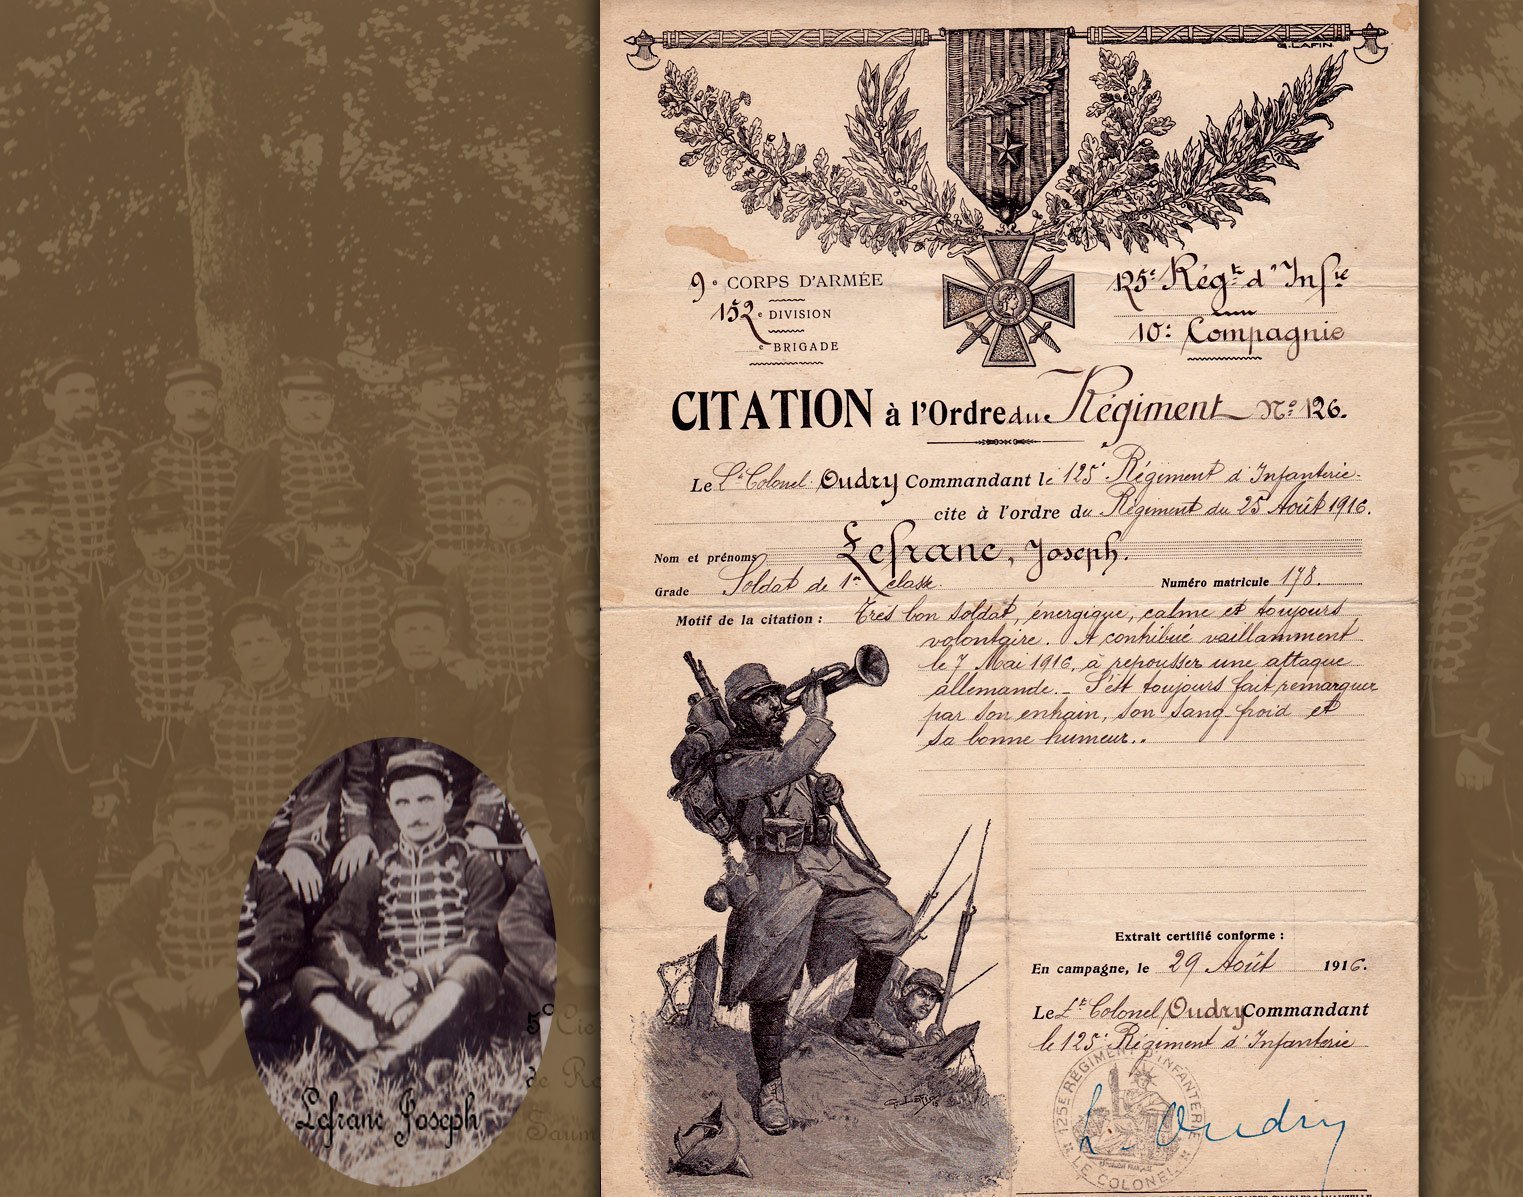 G. LAFIN
9e CORPS D'ARMÉE
152e DIVISION
e BRIGADE
125e Régt d'Infie
10e Compagnie
CITATION à l'Ordre du Régiment No 126.
Le Lt Colonel Oudry Commandant le 125e Régiment d'Infanterie
cite à l'ordre du Régiment du 25 Août 1916.
Nom et prénoms Lefranc, Joseph.
Grade Soldat de 1re classe. Numéro matricule 178.
Motif de la citation : Très bon soldat, énergique, calme et toujours
volontaire. A contribué vaillamment
le 7 Mai 1916, à repousser une attaque
allemande. _ S'est toujours fait remarquer
par son entrain, son sang-froid et
sa bonne humeur..
Extrait certifié conforme :
En campagne, le 29 Août 1916.
Le Lt Colonel Oudry Commandant
le 125e Régiment d'Infanterie
125E RÉGIMENT D'INFANTERIE
LE COLONEL
L. Oudry
G. Lafin
Lefranc Joseph
5e Cie
de Ré
Saum